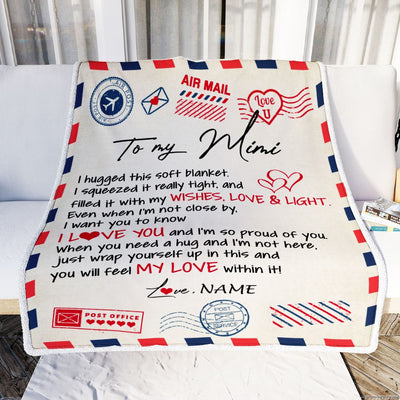 AIR MAIL
Love U
To my Mimi
I hugged this soft blanket.
I squeezed it really tight, and
filled it with my WISHES, LOVE & LIGHT.
Even when I'm not close by.
I want you to know
I L❤VE YOU and I'm so proud of you.
When you need a hug and I'm not here,
just wrap yourself up in this and
you will feel MY LOVE within it!
L❤ve, NAME
POST OFFICE